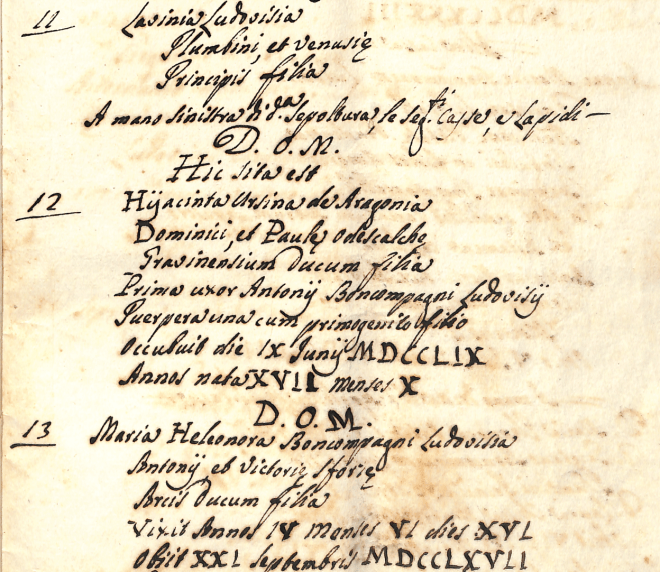 11 Lavinia Ludovisia
Plumbini, et Venusię
Principis filia
A mano sinistra di d.a Sepoltura, le seg.ti Casse, e Lapidi –
D. O. M.
Hic sita est
12 Hijacinta Ursina de Aragonia
Dominici, et Paulę Odescalche
Gravinensium Ducum filia
Prima uxor Antonij Boncompagni Ludovisij
Puerpera una cum primogenito filio
Occubuit die IX Junij MDCCLIX
Annos nata XVII menses X
D. O. M.
13 Maria Heleonora Boncompagni Ludovisia
Antonij et Victorię Sforię
Arcis Ducum filia
Vixit Annos IV Menses VI dies XVI
Obiit XXI Septembris MDCCLXVII